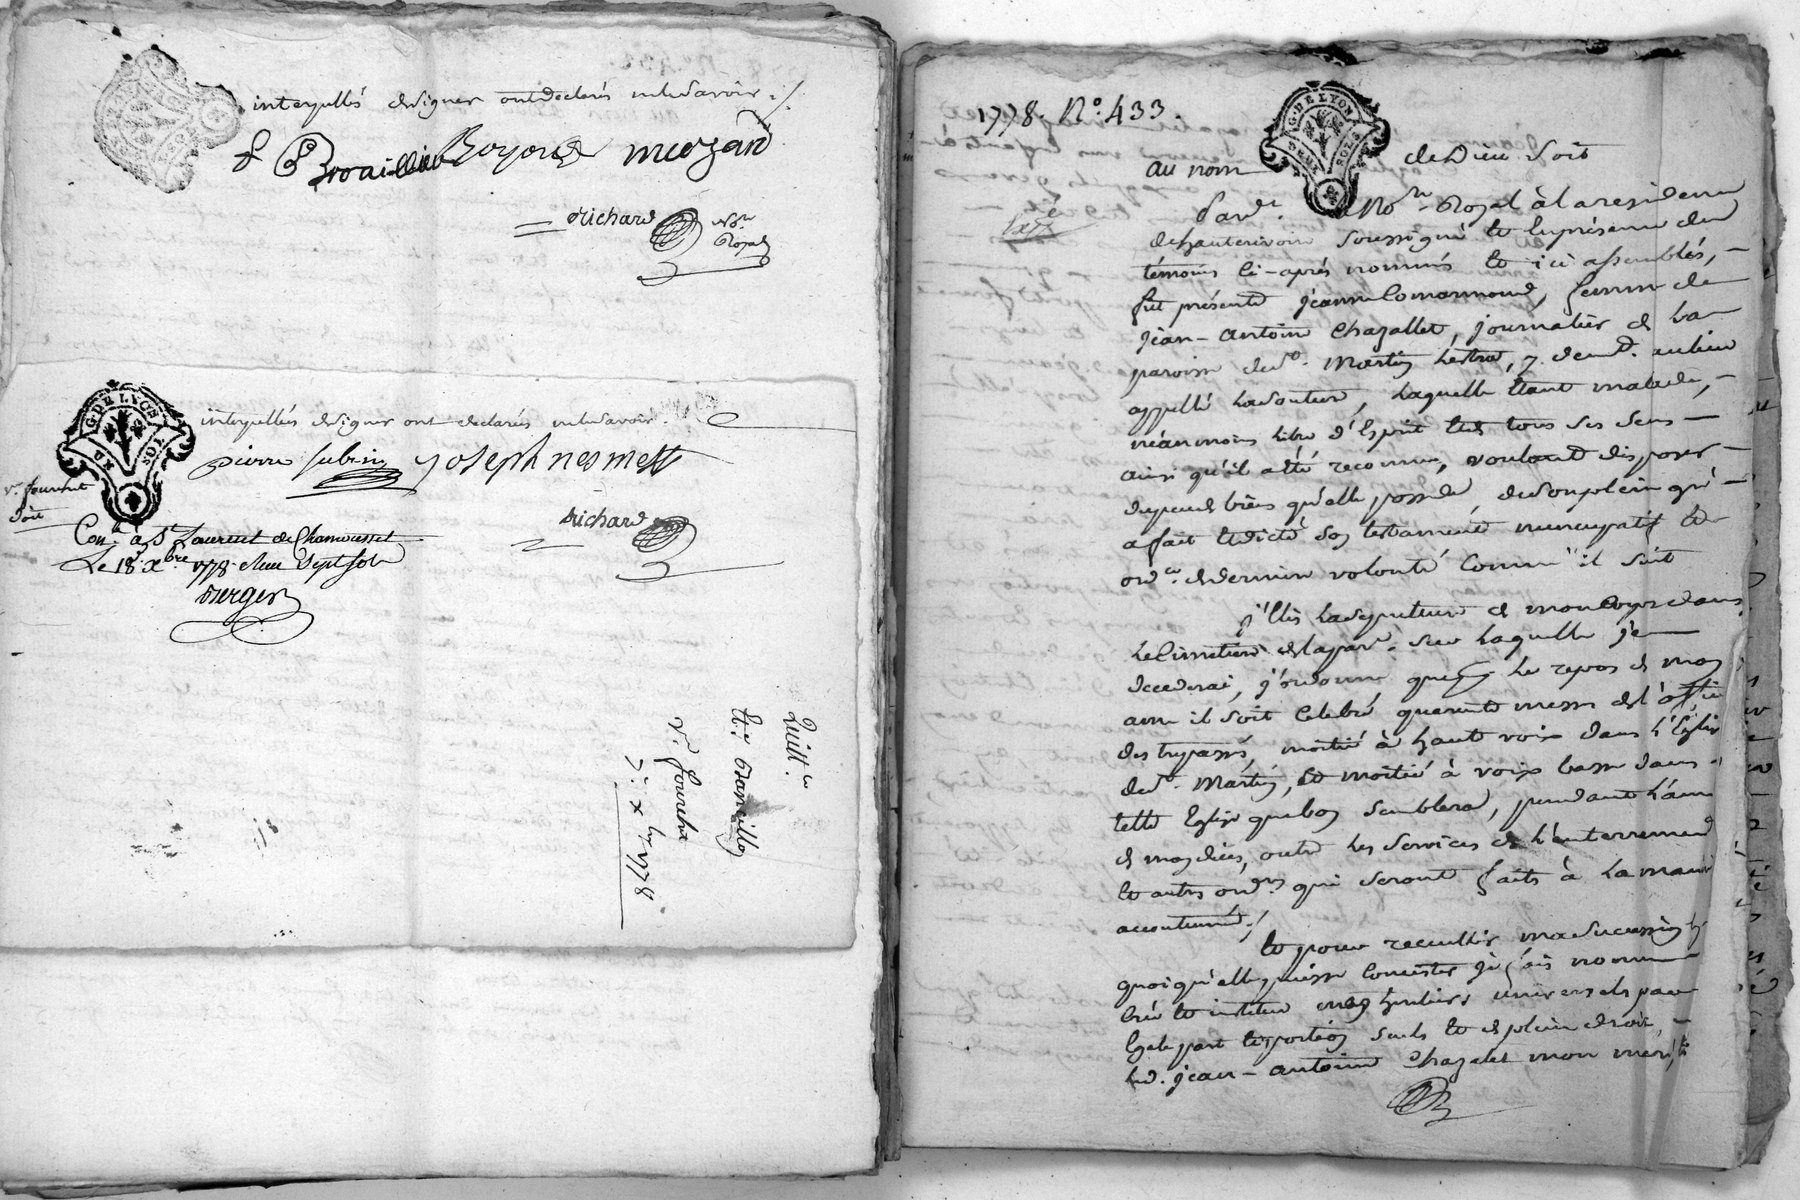 interpellés de signer ont declarés ne le savoir ./.
Brouillier Boyond merzand
Richard
No.re
Royal
G. DE LYON
interpellées de signer ont declarés ne le savoir.
pierre joseph nesmes
v.e fourchet
doit
Richard
Con.lé à S.t Laurent de Chamousset
Le 18 xbre 1778. Reçu Sept sols
Berger
Quitt.ce
Et.e
v.e fourchet
7.e xbre 1778
1778. N.o 433.
G. DE LYON
DEUX SOLS
au nom de Dieu soit
Pard.t le No.re Royal à la residence
de hauterivoire soussigné et en presence des
témoins ci-aprés nommés et ici assemblés,
fut présente jeanne Comarmond, femme de
jean-antoine Chazallet, journalier de la
paroisse de S.t Martin Lestra, y demt. au lieu
appellé , laquelle étant malade,
néanmoins libre d'Esprit et de tous ses sens
ainsi qu'il a été reconnu, voulant disposer
du peu de biens qu'elle possede, de son plein gré
a fait et dicté son testament nuncupatif et
ord.ce de derniere volonté comme il suit
j'Elis la sepulture de mon corps dans
le Cimetiere de la par.se sur laquelle je
decederai, j'ordonne que pour le repos de mon
ame il soit Celebré quarante messes de l'office
des trepassés, moitié à haute voix dans l'Eglise
de S.t Martin, et moitié à voix basse dans
telle Eglise que bon semblera, pendant l'année
de mon decès, outre les services de l'enterrement
et autres ord.res qui seront faits à la maniere
accoutumée.
Et pour recueillir ma succession en
quoi qu'elle puisse Consister je fais nomme
crée et institue mes heritiers universels par
Egale part et portion seuls et de plein droit,
led. jean-antoine Chazalet mon mari, et